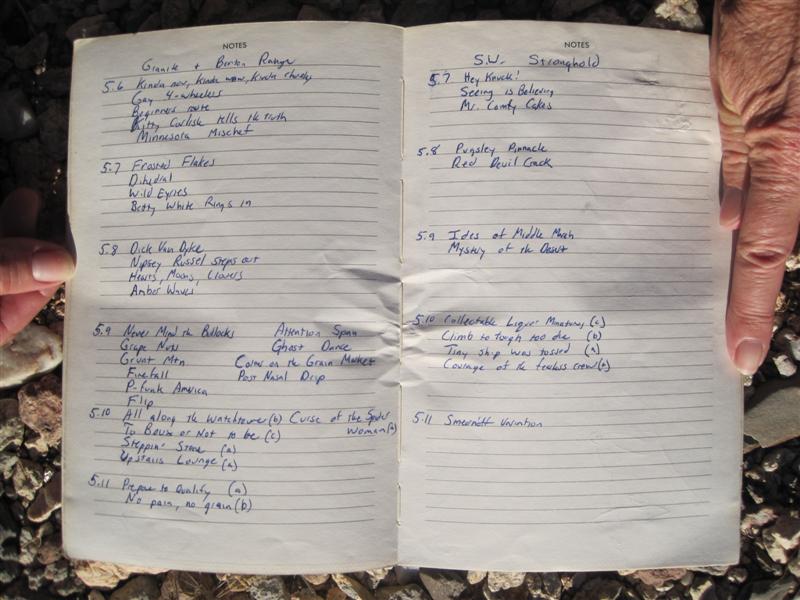 NOTES
Granite + Benton Range
5.6 Kinda new, Kinda wow, Kinda chunky
Gay 4-wheelers
Beginners route
Kitty Carlisle tells the truth
Minnesota Mischef
5.7 Frosted Flakes
Dihedral
Wild Eyries
Betty White Rings in
5.8 Dick Van Dyke
Nipsey Russel steps out
Hearts, Moons, Clovers
Amber Waves
5.9 Never Mind the Bullocks Attention Span
Grape Nuts Ghost Dance
Grunt Mtn on the Grain Market
Firefall Post Nasal Drip
P-funk America
Flip
5.10 All along the Watchtower (b) Curse of the Spider
To Bounce or Not to be (c) Woman (a)
Steppin' Stone (a)
Upstairs Lounge (a)
5.11 Prepare to Qualify (a)
No pain, no grain (b)
NOTES
S.W. Stronghold
5.7 Hey Knuck!
Seeing is Believing
Mr. Comfy Cakes
5.8 Pugsley Pinnacle
Red Devil Crack
5.9 Ides of Middle March
Mystery of the Desert
5.10 Collectable Liquor Minatures (c)
Climb to tough too die (b)
Tiny Ship was tossed (a)
Courage of the fearless crew (a)
5.11 Variation